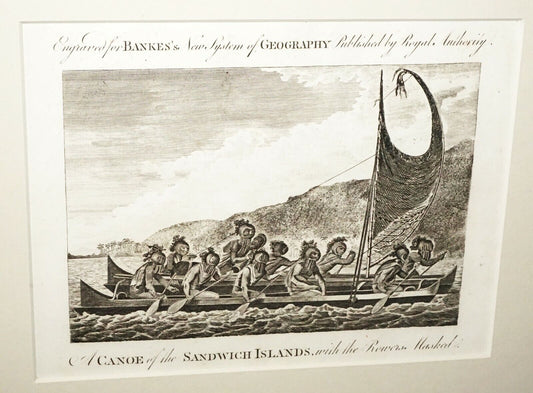 Engraved for BANKES's New System of GEOGRAPHY Published by Royal Authority.
A CANOE of the SANDWICH ISLANDS, with the Rowers Masked.